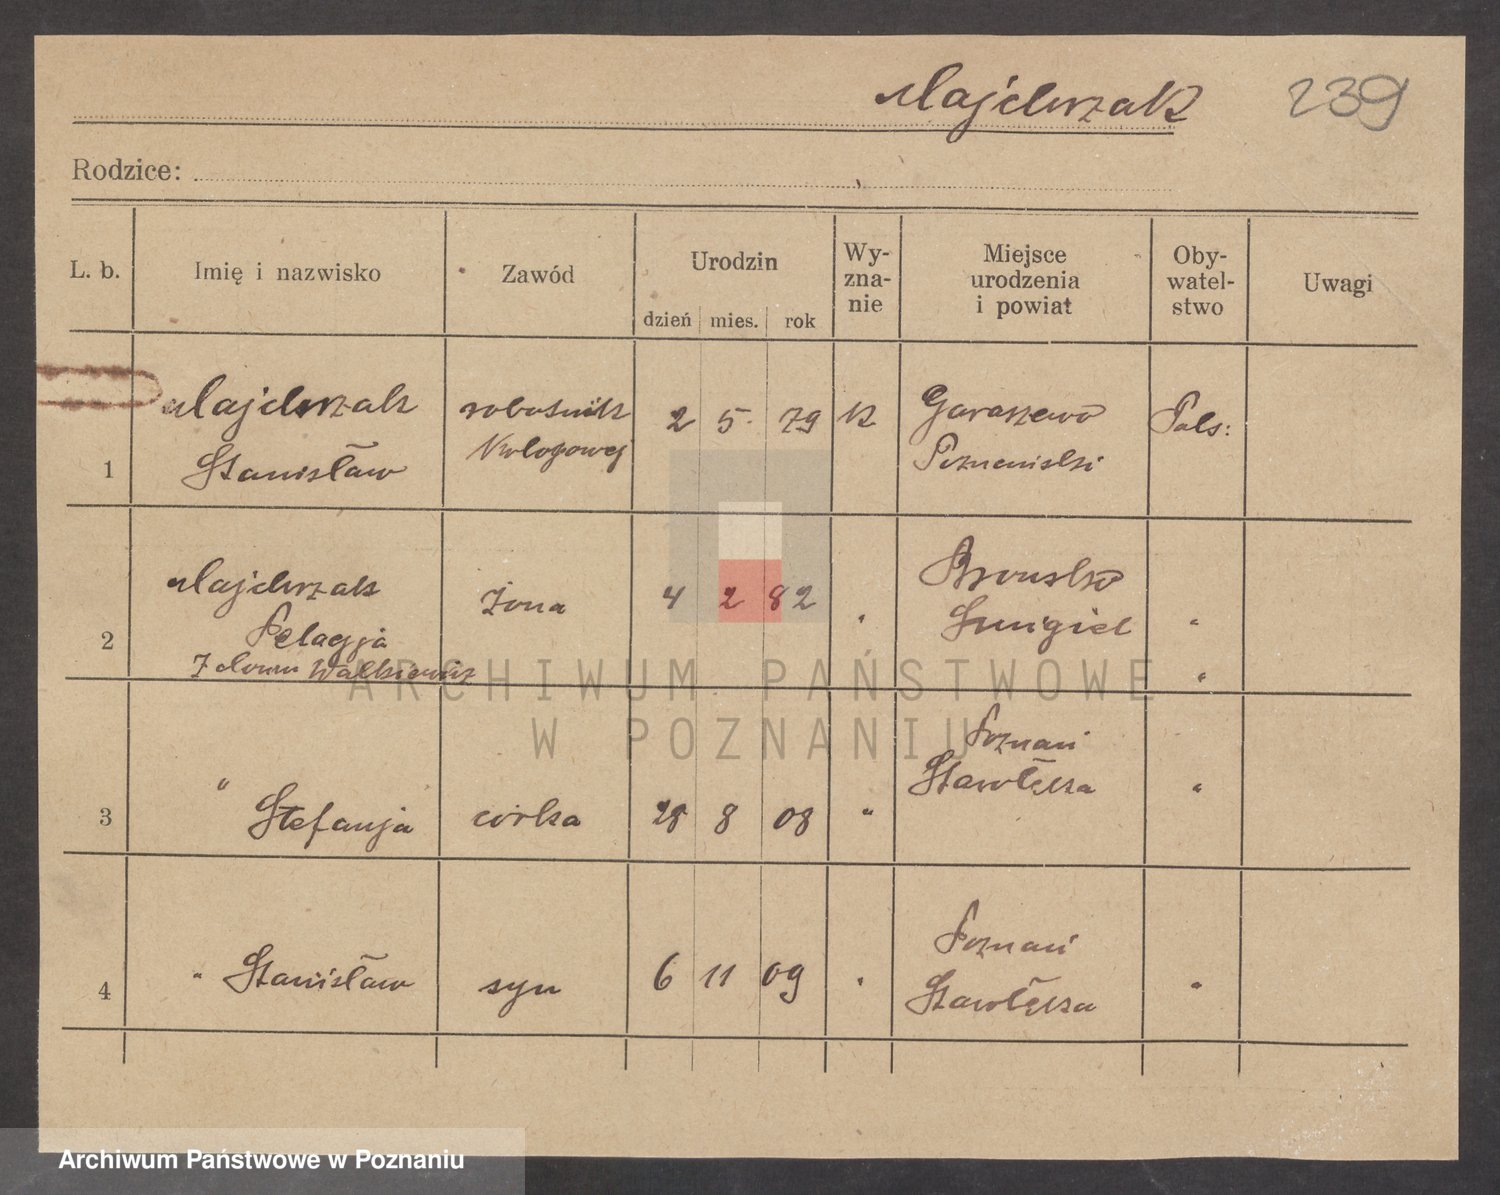 Majchrzak 239
Rodzice:
L. b. Imię i nazwisko Zawód Urodzin dzień mies. rok Wy-zna-nie Miejsce urodzenia i powiat Oby-watel-stwo Uwagi
Majchrzak robotnik 2 5. 79 K Garaszewo Pols:
1 Stanisław Poznański
Majchrzak Żona 4 2 82 " Bronsko "
2 Pelagja Śmigiel
Z domu Walkiewicz "
Poznań
" Starołęka "
3 Stefanja córka 28 8 08 "
Poznań
4 " Stanisław syn 6 11 09 " Starołęka "
ARCHIWUM PAŃSTWOWE
W POZNANIU
Archiwum Państwowe w Poznaniu